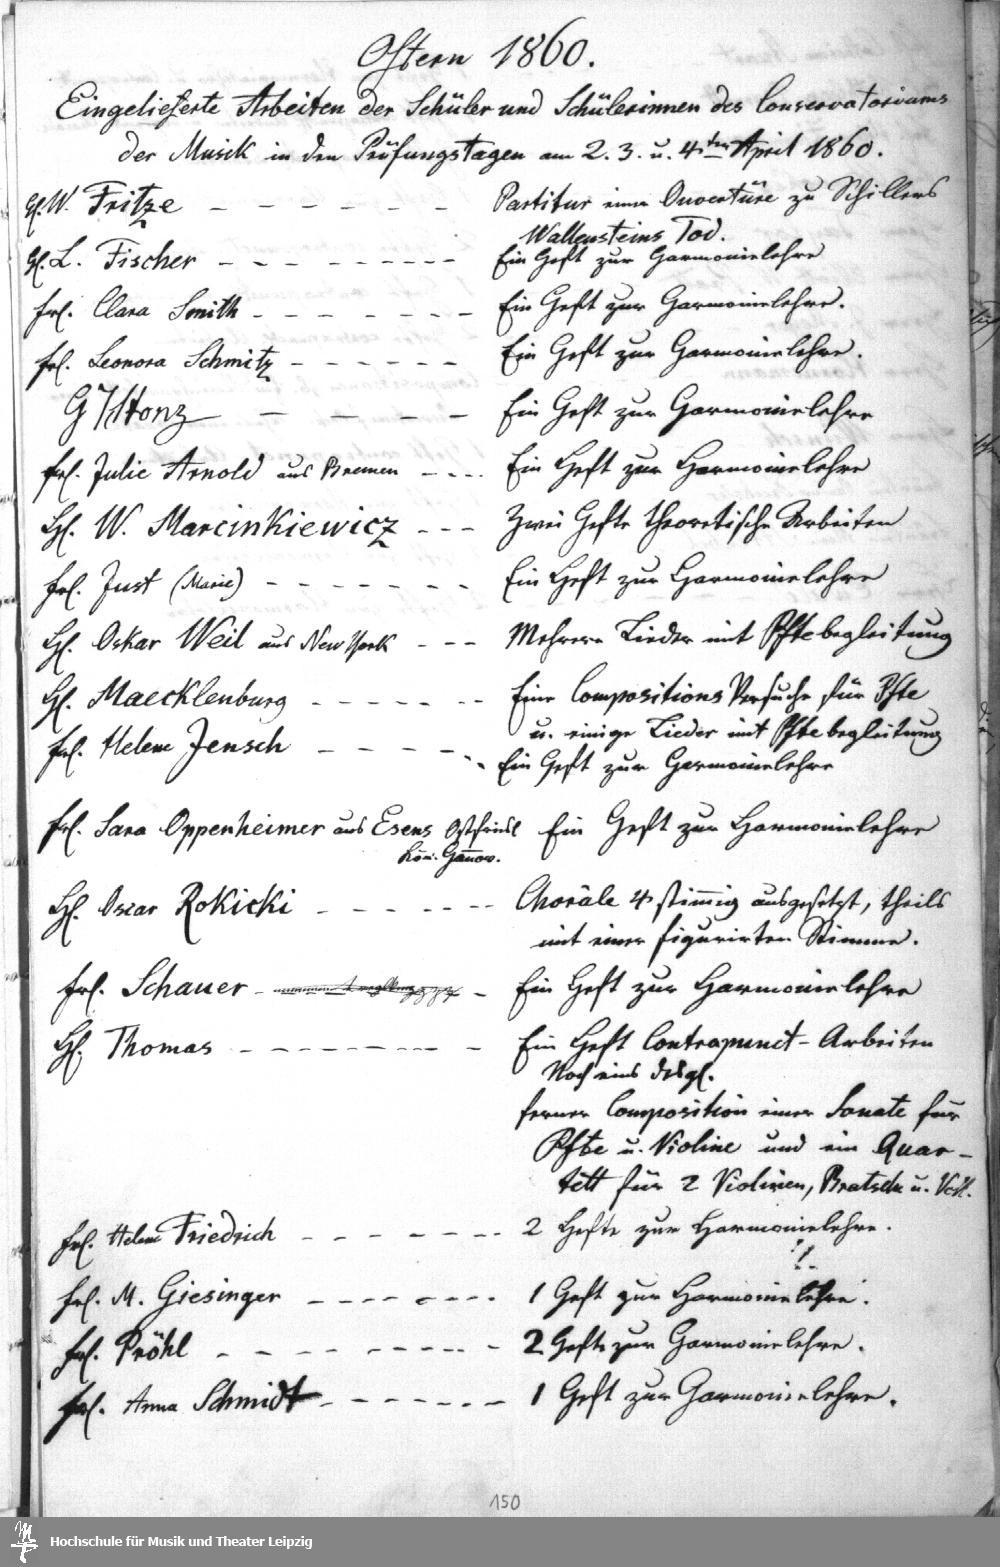 Ostern 1860.
Eingelieferte Arbeiten der Schüler und Schülerinnen des Conservatoriums
der Musik in den Prüfungstagen am 2. 3. u. 4ten April 1860.
H. W. Fritze - - - - - - Partitur einer Ouvertüre zu Schillers
Wallensteins Tod.
H. L. Fischer - - - - - - - - Ein Heft zur Harmonielehre
Frl. Clara Smith - - - - - - - Ein Heft zur Harmonielehre.
Frl. Leonora Schmitz - - - - - - Ein Heft zur Harmonielehre.
- - - - Ein Heft zur Harmonielehre
Frl. Julie Arnold aus Bremen - - - Ein Heft zur Harmonielehre
H. W. Marcinkiewicz - - - Zwei Hefte theoretische Arbeiten
Frl. Just (Marie) - - - - - - - Ein Heft zur Harmonielehre
H. Oskar Weil aus New York - - - Mehrere Lieder mit Pftebegleitung
H. Maecklenburg - - - - - - Eine Compositions Versuche für Pfte
u. einige Lieder mit Pftebegleitung
Frl. Helene Jensch - - - - - - Ein Heft zur Harmonielehre
Frl. Sara Oppenheimer aus Esens Ostfriesl Ein Heft zur Harmonielehre
Kön. Hannov.
H. Oscar Rokicki - - - - - - Choräle 4stimmig ausgesetzt, theils
mit einer figurirten Stimme.
Frl. Schauer - - Ein Heft zur Harmonielehre
H. Thomas - - - - - - - - Ein Heft Contrapunct-Arbeiten
Noch eins desgl.
ferner Composition einer Sonate für
Pfte u. Violine und ein Quar-
tett für 2 Violinen, Bratsche u. Vcll.
Frl. Helene Friedrich - - - - - - 2 Hefte zur Harmonielehre.
Frl. M. Giesinger - - - - - - 1 Heft zur Harmonielehre.
Frl. Pröhl - - - - - - - - 2 Hefte zur Harmonielehre.
Frl. Anna Schmidt - - - - - - - 1 Heft zur Harmonielehre.
150
Hochschule für Musik und Theater Leipzig